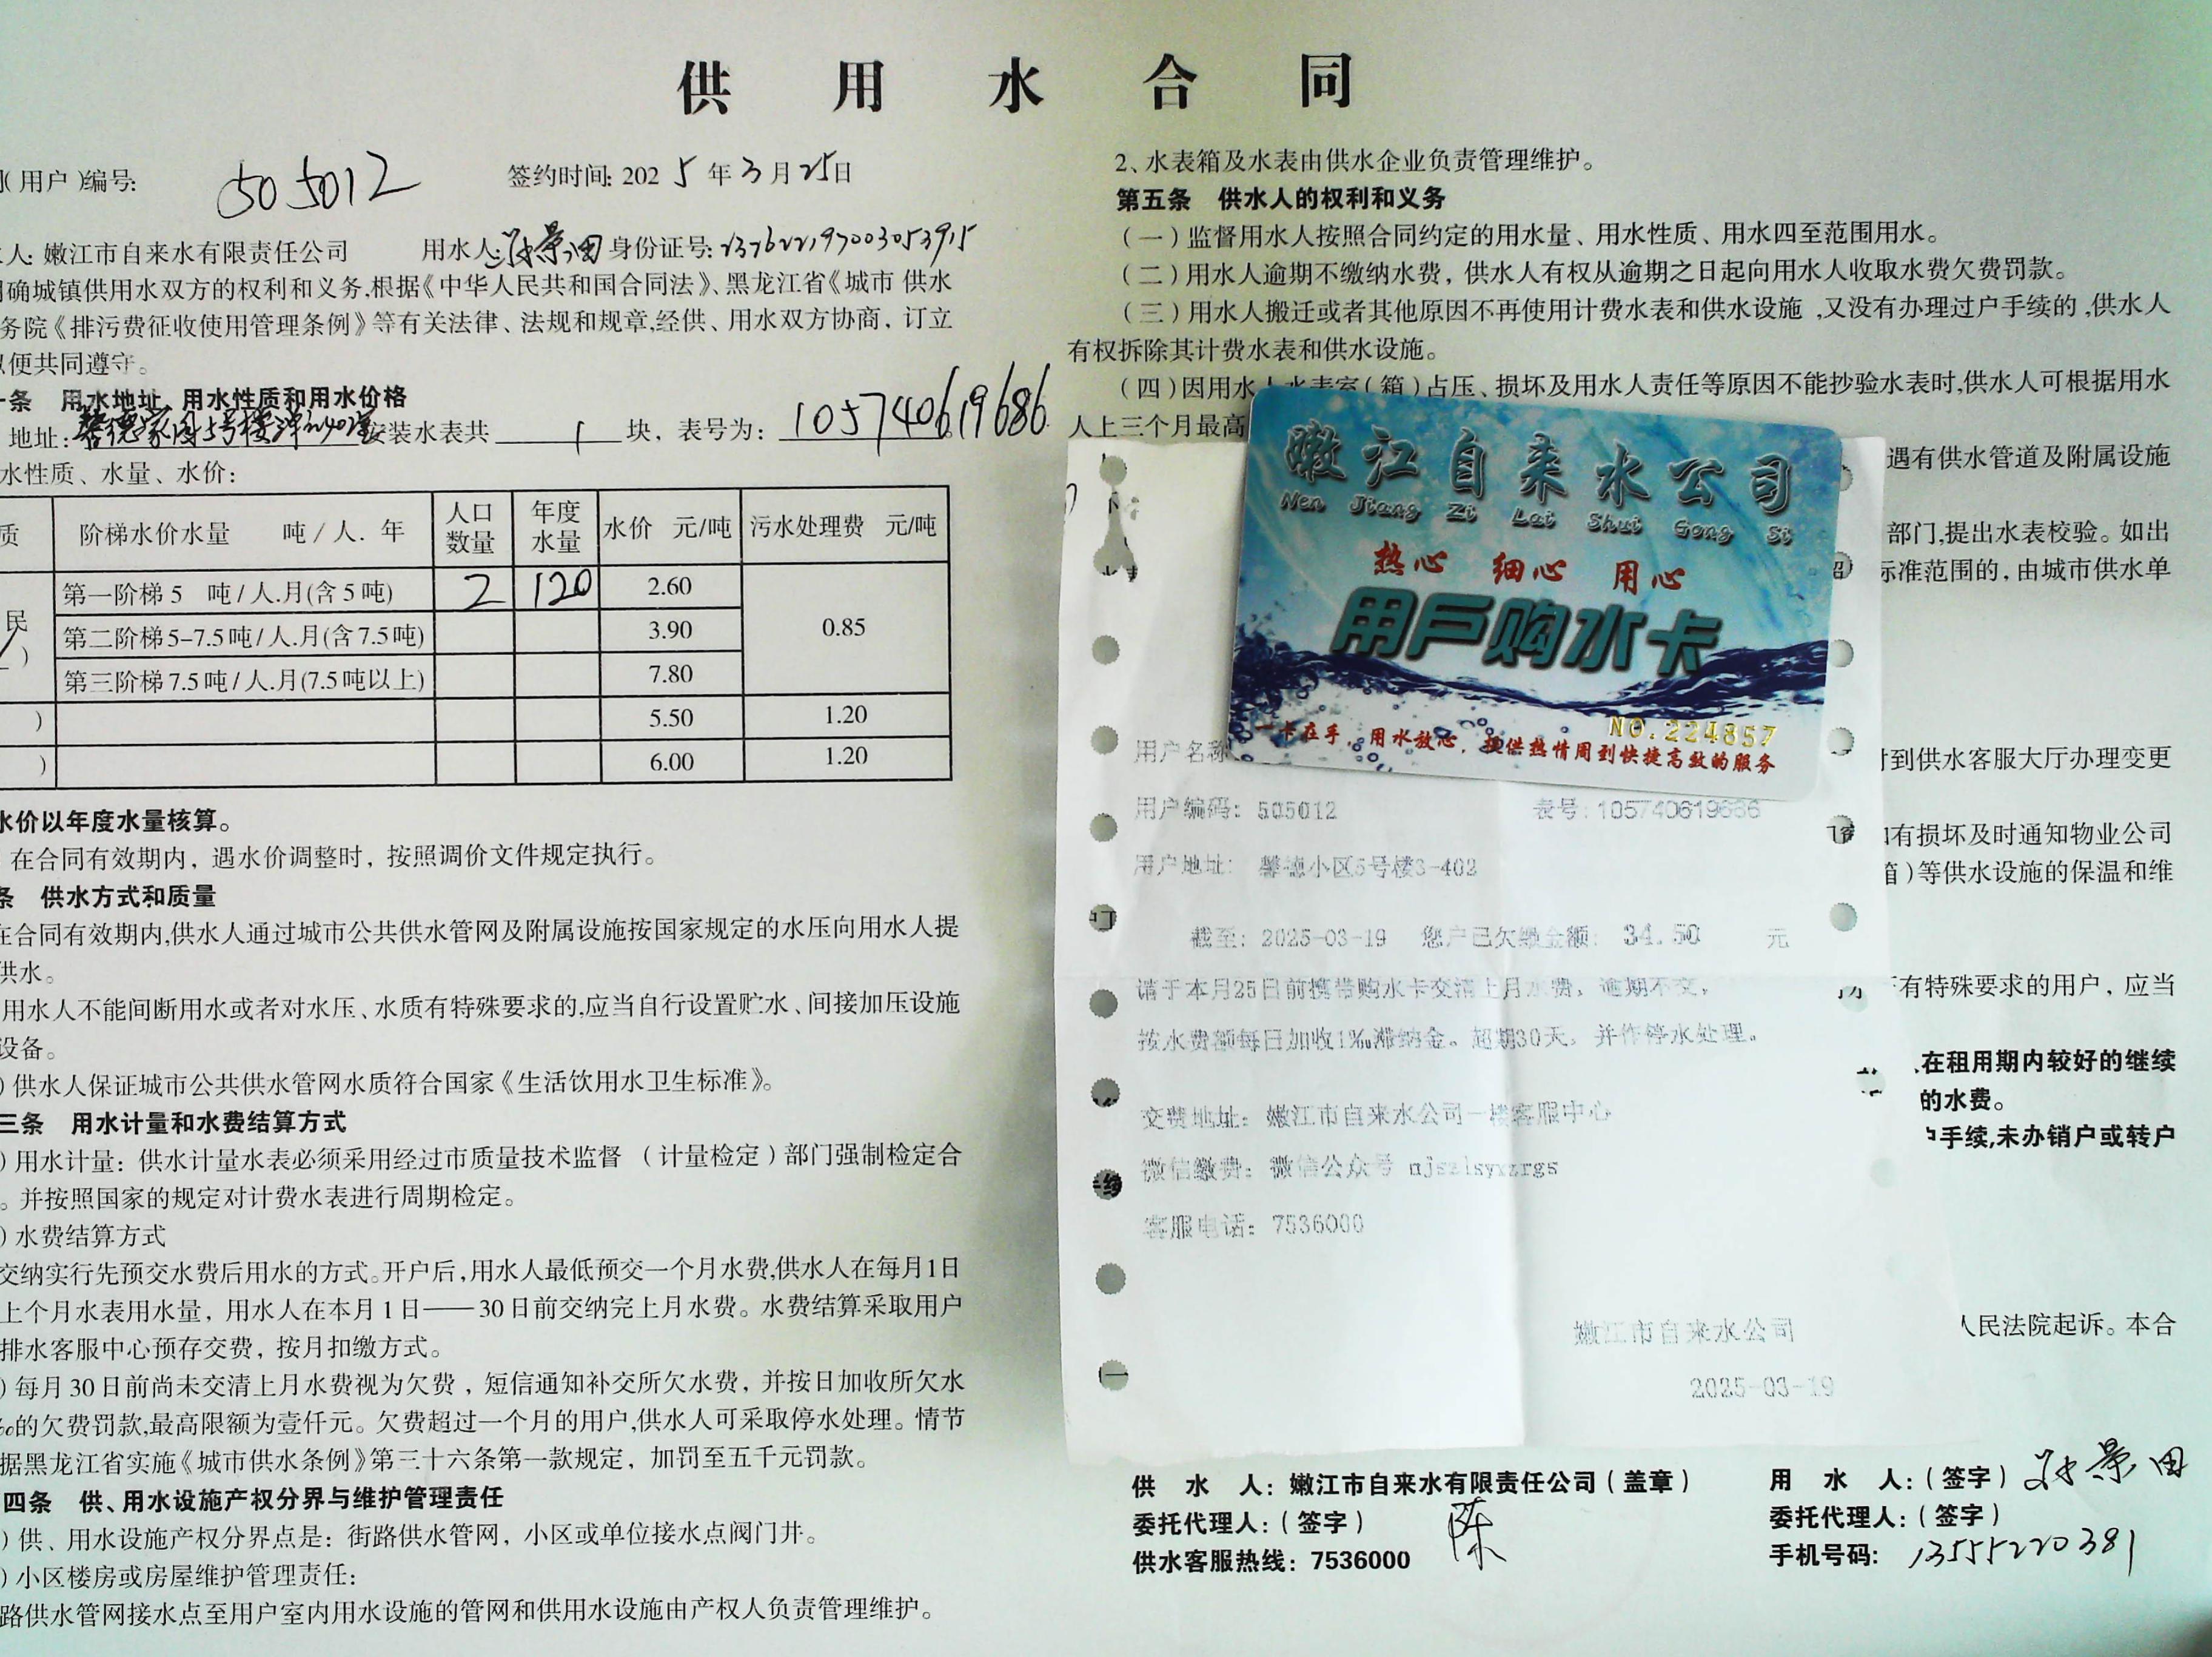 供 用 水 合 同
(用户)编号: 505012 签约时间: 2025年3月25日
人: 嫩江市自来水有限责任公司 用水人: 景田 身份证号:
确城镇供用水双方的权利和义务,根据《中华人民共和国合同法》、黑龙江省《城市 供水
务院《排污费征收使用管理条例》等有关法律、法规和规章,经供、用水双方协商，订立
便共同遵守。
条 用水地址、用水性质和用水价格
地址: 安装水表共 1 块，表号为: 105740619686
水性质、水量、水价:
质 阶梯水价水量 吨/人.年 人口数量 年度水量 水价 元/吨 污水处理费 元/吨
民 第一阶梯 5 吨/人.月(含5吨) 2 120 2.60 0.85
) 第二阶梯5-7.5吨/人.月(含7.5吨) 3.90
第三阶梯7.5吨/人.月(7.5吨以上) 7.80
) 5.50 1.20
) 6.00 1.20
水价以年度水量核算。
在合同有效期内，遇水价调整时，按照调价文件规定执行。
条 供水方式和质量
在合同有效期内,供水人通过城市公共供水管网及附属设施按国家规定的水压向用水人提
供水。
用水人不能间断用水或者对水压、水质有特殊要求的,应当自行设置贮水、间接加压设施
设备。
)供水人保证城市公共供水管网水质符合国家《生活饮用水卫生标准》。
三条 用水计量和水费结算方式
)用水计量：供水计量水表必须采用经过市质量技术监督（计量检定）部门强制检定合
。并按照国家的规定对计费水表进行周期检定。
)水费结算方式
交纳实行先预交水费后用水的方式。开户后,用水人最低预交一个月水费,供水人在每月1日
上个月水表用水量，用水人在本月1日——30日前交纳完上月水费。水费结算采取用户
排水客服中心预存交费，按月扣缴方式。
)每月30日前尚未交清上月水费视为欠费，短信通知补交所欠水费，并按日加收所欠水
‰的欠费罚款,最高限额为壹仟元。欠费超过一个月的用户,供水人可采取停水处理。情节
据黑龙江省实施《城市供水条例》第三十六条第一款规定，加罚至五千元罚款。
四条 供、用水设施产权分界与维护管理责任
)供、用水设施产权分界点是：街路供水管网，小区或单位接水点阀门井。
)小区楼房或房屋维护管理责任：
路供水管网接水点至用户室内用水设施的管网和供用水设施由产权人负责管理维护。
2、水表箱及水表由供水企业负责管理维护。
第五条 供水人的权利和义务
（一）监督用水人按照合同约定的用水量、用水性质、用水四至范围用水。
（二）用水人逾期不缴纳水费，供水人有权从逾期之日起向用水人收取水费欠费罚款。
（三）用水人搬迁或者其他原因不再使用计费水表和供水设施 ,又没有办理过户手续的,供水人
有权拆除其计费水表和供水设施。
（四）因用水人水表室（箱）占压、损坏及用水人责任等原因不能抄验水表时,供水人可根据用水
人上三个月最高
遇有供水管道及附属设施
部门,提出水表校验。如出
标准范围的，由城市供水单
时到供水客服大厅办理变更
如有损坏及时通知物业公司
箱）等供水设施的保温和维
有特殊要求的用户，应当
在租用期内较好的继续
的水费。
户手续,未办销户或转户
人民法院起诉。本合
嫩江自来水公司
Nen Jiang Zi Lai Shui Gong Si
热心 细心 用心
用户购水卡
NO.224857
一卡在手，用水放心，提供热情周到快捷高效的服务
用户名称
用户编码: 505012 表号: 105740619686
用户地址: 馨德小区5号楼3-402
截至: 2025-03-19 您户已欠缴金额: 34.50 元
请于本月25日前携带购水卡交清上月水费，逾期不交，
按水费额每日加收1‰滞纳金。超期30天，并作停水处理。
交费地址: 嫩江市自来水公司一楼客服中心
微信缴费: 微信公众号
客服电话: 7536000
嫩江市自来水公司
2025-03-19
供 水 人：嫩江市自来水有限责任公司（盖章） 用 水 人：（签字） 景田
委托代理人：（签字） 陈 委托代理人：（签字）
供水客服热线：7536000 手机号码: 13555220381